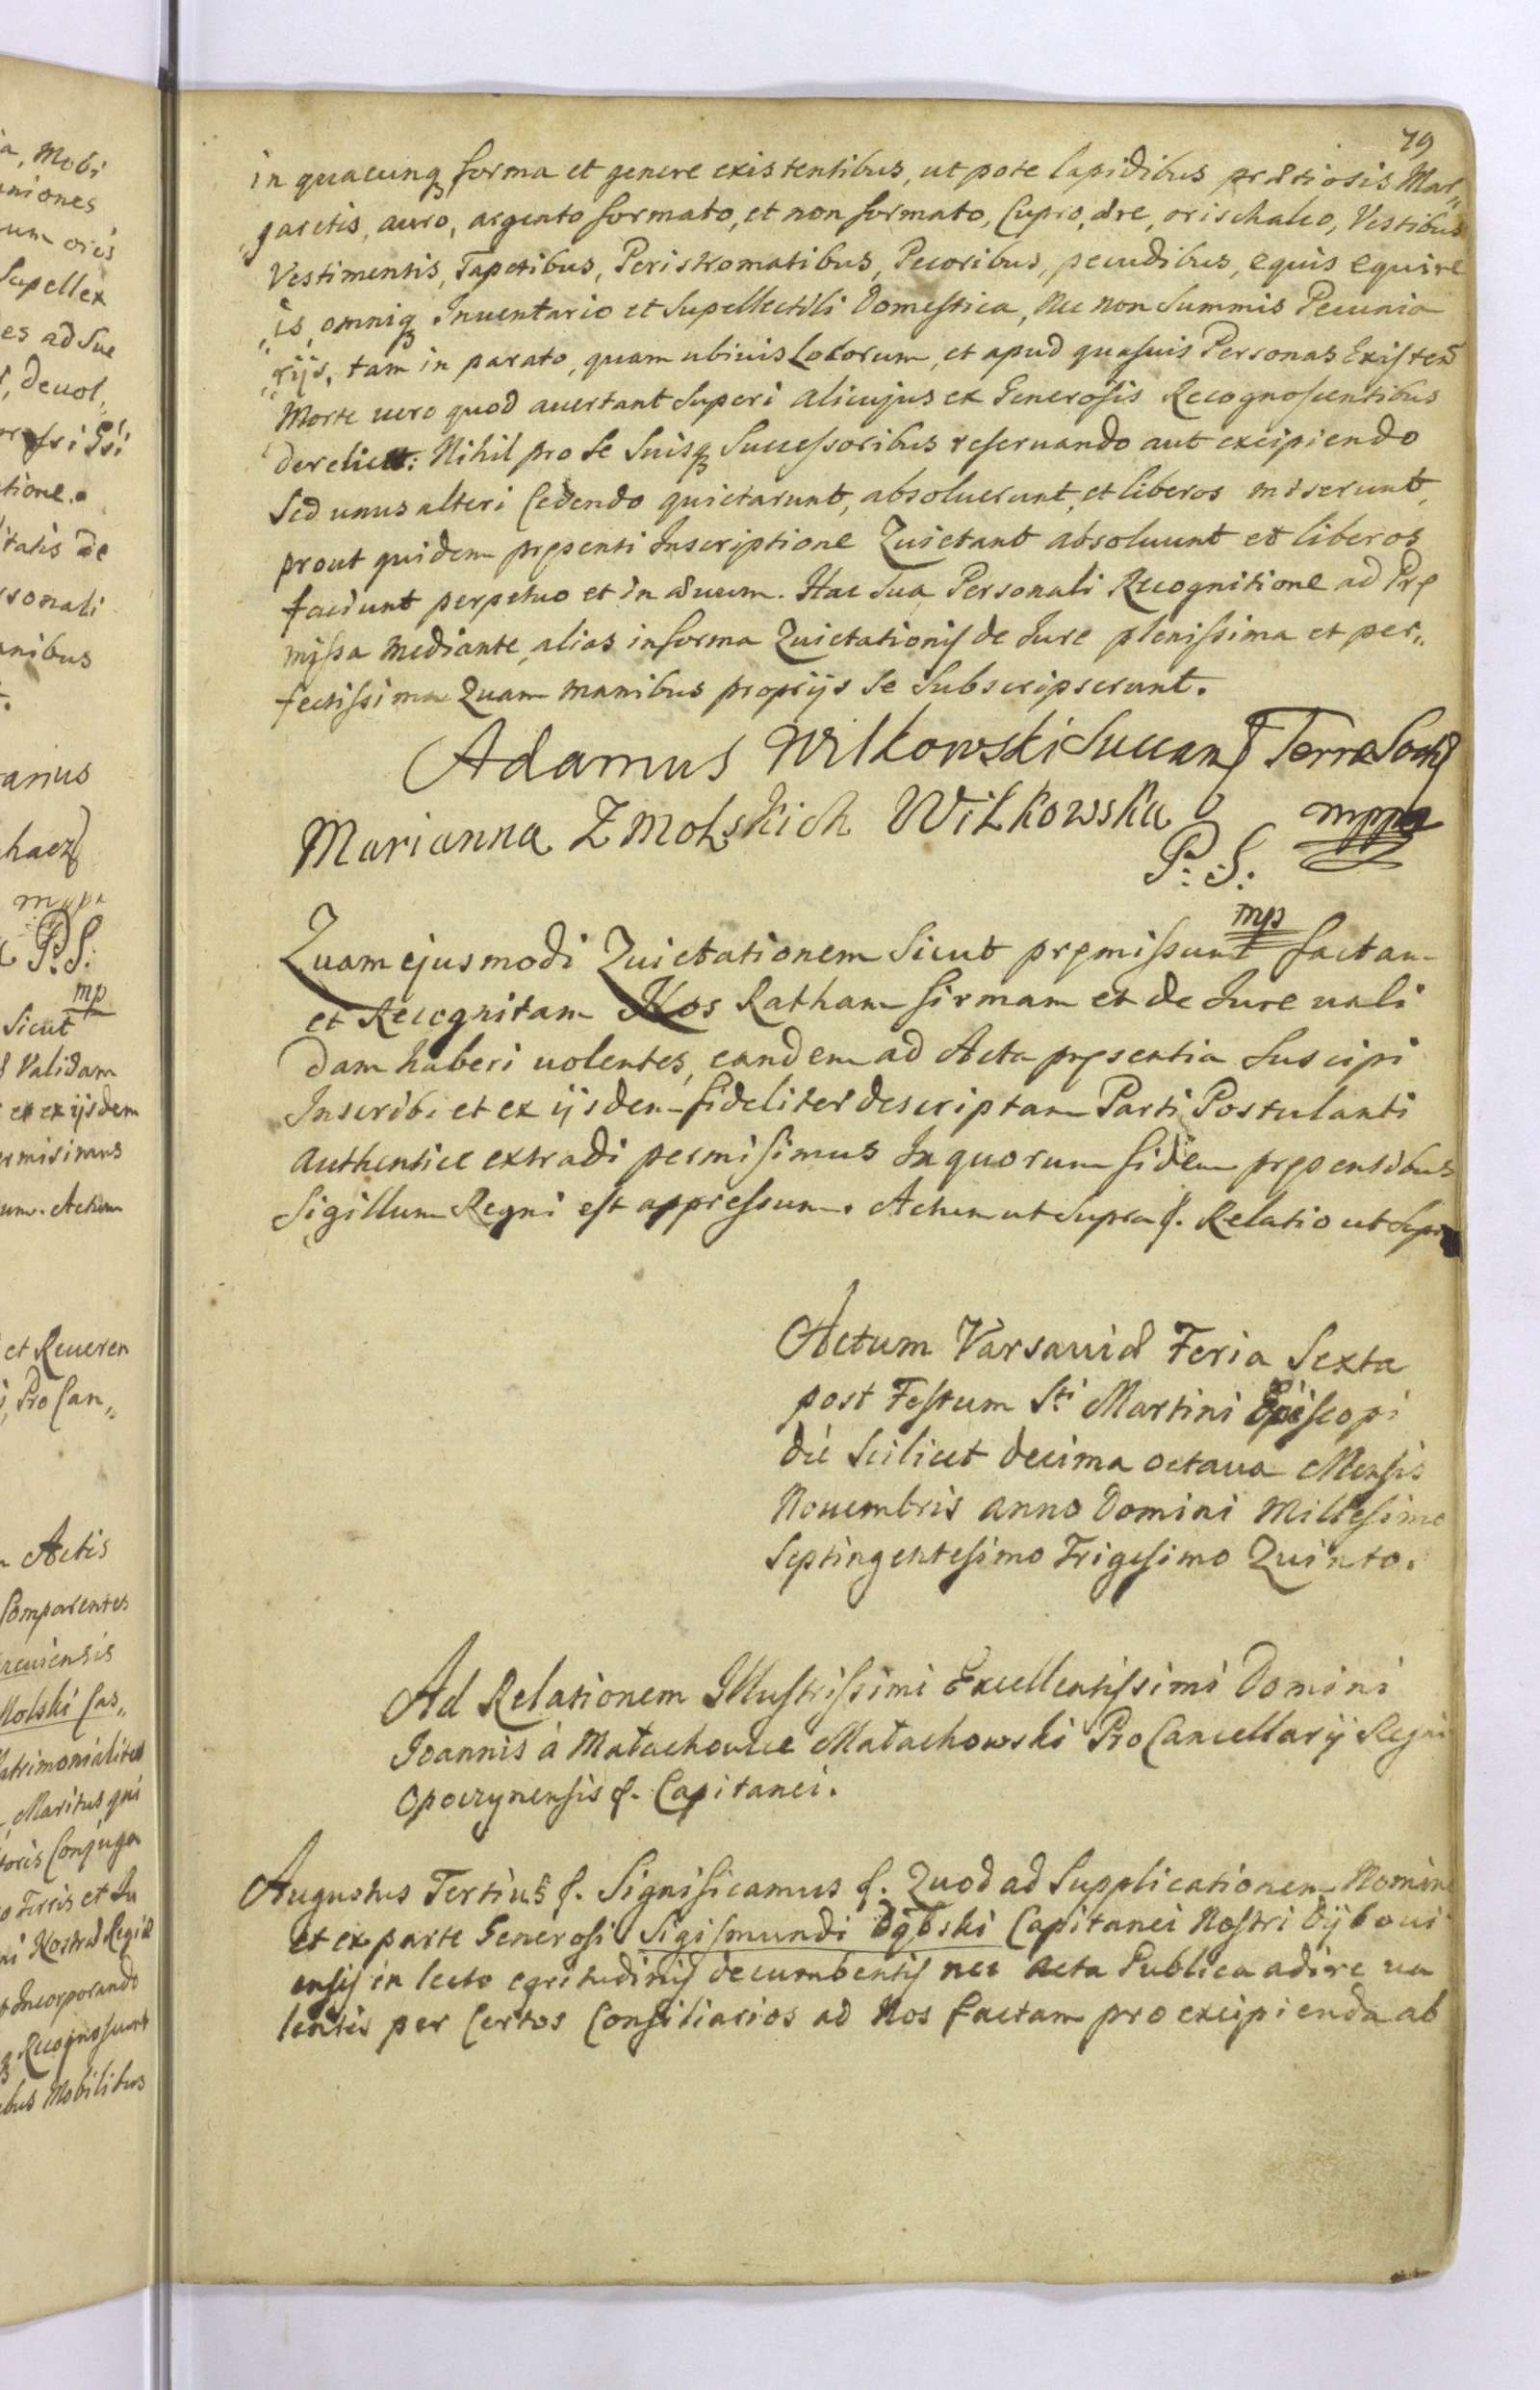 79
in quacunq forma et genere existentibus, ut pote lapidibus prætiosis Mar„
„garitis, auro, argento formato, et non formato, Cupro, ære, orischalco, Vestibus
Vestimentis, Tapetibus, Peristromatibus, Pecoribus, pecudibus, equis equire
„is, omniq Inuentario et Supellectili Domestica, Nec non Summis Pecunia
„rijs, tam in parato, quam ubiuis Locorum, et apud quasuis Personas Existen
Morte uero quod auertant Superi alicujus ex Generosis Recognoscentibus
derelict: Nihil pro se Suisq Successoribus reseruando aut excipiendo
Sed unus alteri Cedendo quietarunt, absoluerunt, et liberos miserunt,
prout quidem pręsenti Inscriptione Quietant absoluunt et liberos
faciunt perpetuo et in æuum. Hac Sua Personali Recognitione ad Prę
missa mediante, alias in forma Quietationis de Jure plenissima et per„
fectissima Quam manibus proprijs se Subscripserunt.
Adamus Wilkowski Succam Terræ Soch
Marianna Z Molskich Wilkowska mppa
P: S:
mp
Quam ejusmodi Quietationem Sicut pręmissum factam
et Recognitam Nos Ratham firmam et de Jure uali
dam haberi uolentes, eandem ad Acta pręsentia Suscipi
Inscribi et ex ijsdem fideliter descriptam Parti Postulanti
authentice extradi permisimus In quorum fidem pręsentibus
Sigillum Regni est appressum. Actum ut Supra f. Relatio ut Supra
Actum Varsauiæ Feria Sexta
post Festum Sti Martini Episcopi
die Scilicet decima octaua Mensis
Nouembris anno Domini Millesimo
Septingentesimo Trigesimo Quinto.
Ad Relationem Illustrissimi Excellentissimi Domini
Joannis à Małachowice Małachowski ProCancellarij Regni
Opoczynensis f. Capitanei.
Augustus Tertius f. Significamus f. Quod ad Supplicationem Nomine
et ex parte Generosi Sigismundi Dąbski Capitanei Nostri Dijboui
ensis in lecto egritudinis decumbentis nec Acta Publica adire ua
lentis per Certos Consiliarios ad Nos factam pro excipienda ab